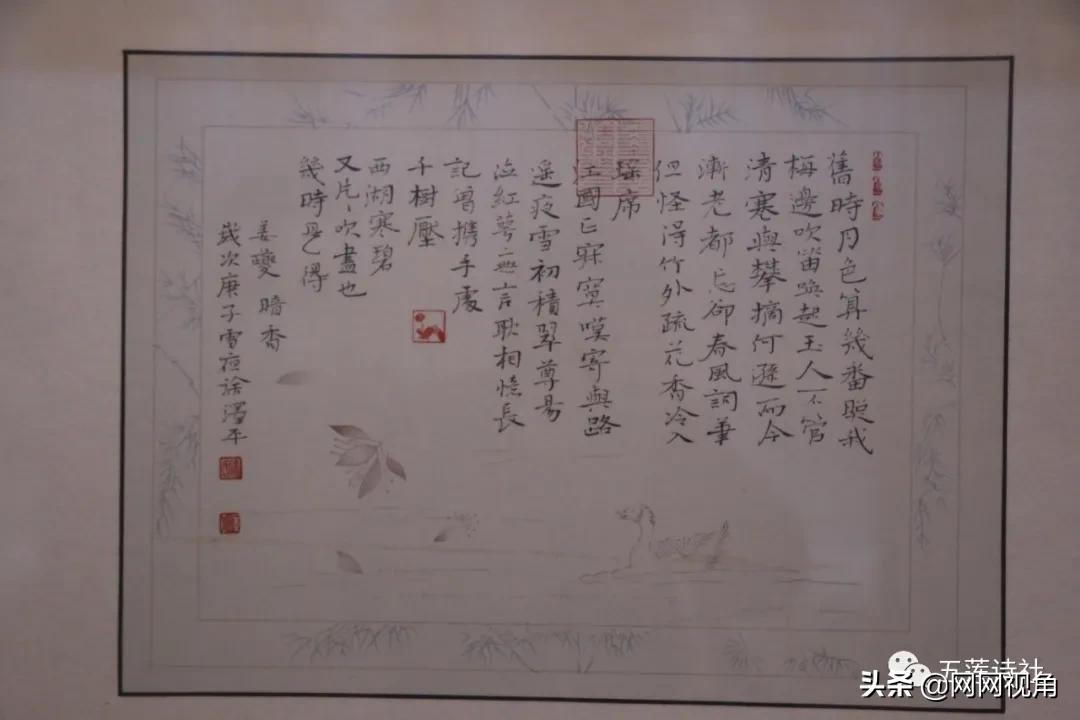 舊時月色算幾番照我
梅邊吹笛喚起玉人不管
清寒與攀摘何遜而今
漸老都忘卻春風詞筆
但怪得竹外疏花香冷入
瑤席
江國正寂寞嘆寄與路
遥夜雪初積翠尊易
泣紅萼無言耿相憶長
記曾携手處
千樹壓
西湖寒碧
又片片吹盡也
幾時見得
姜夔 暗香
歲次庚子雪夜
五莲诗社
头条 @网网视角